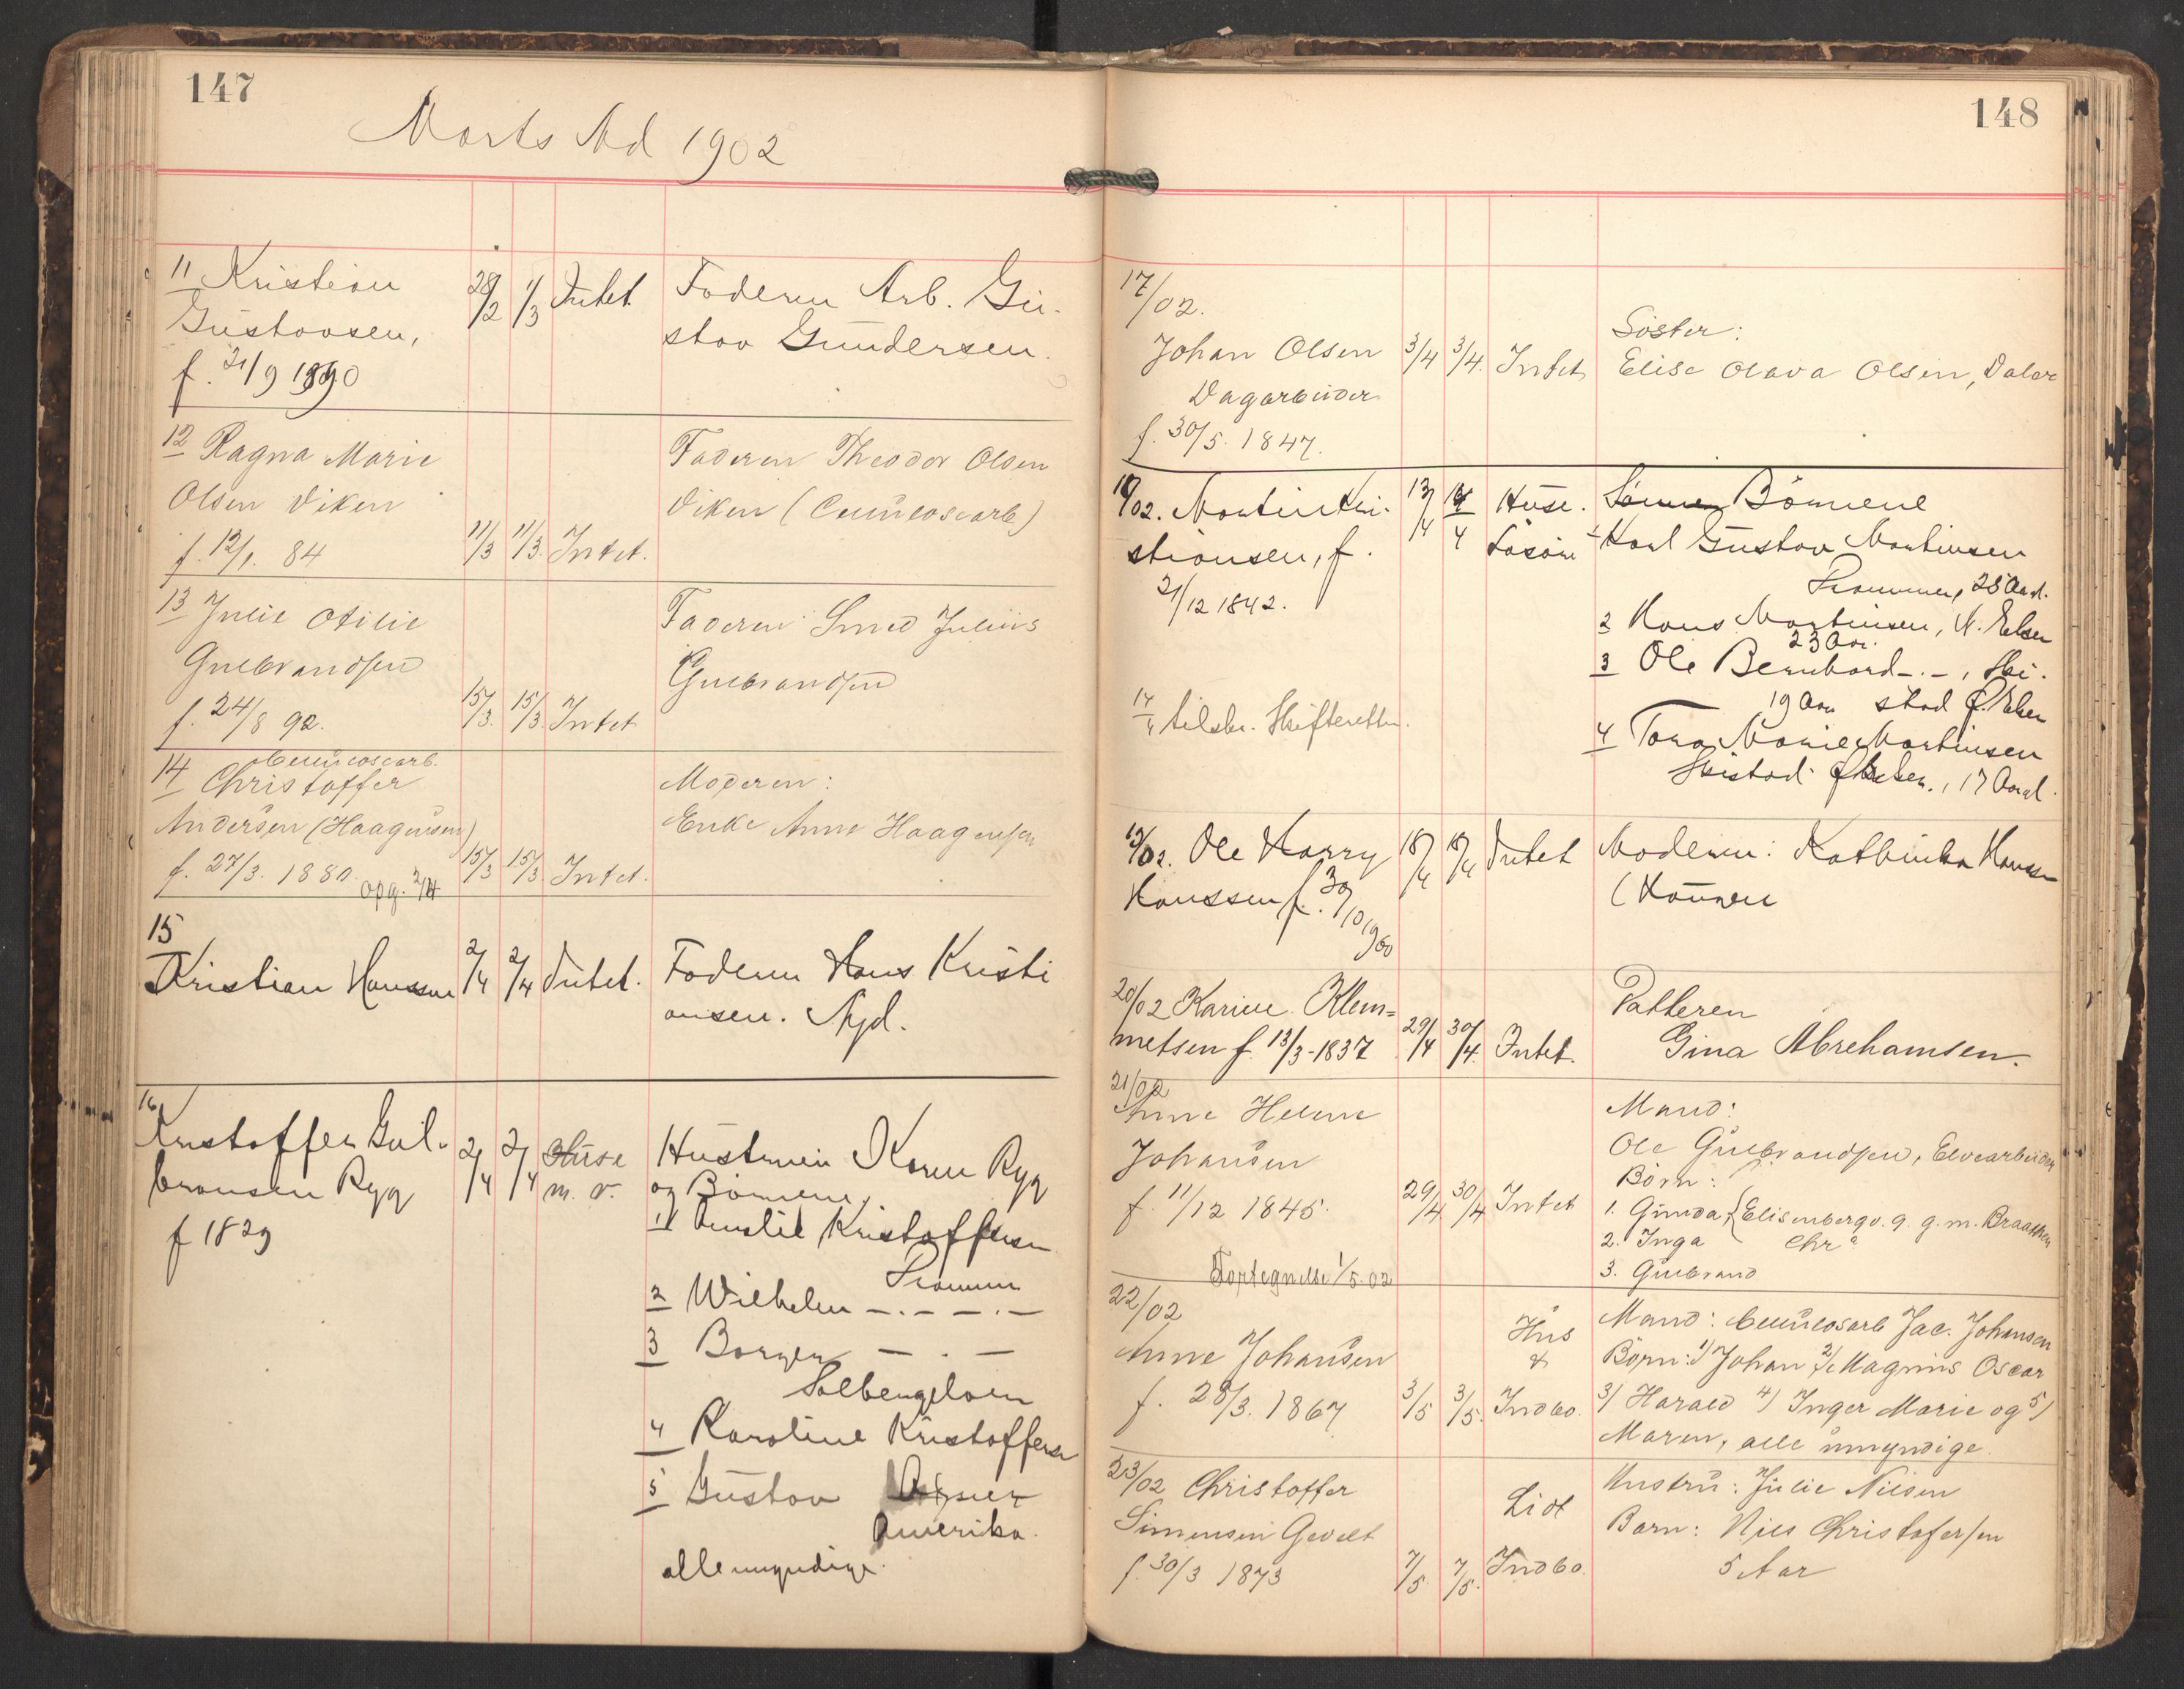 147
Marts Md 1902
11 Kristian
Gustavsen,
f. 21/9 1890
28/2 1/3 Intet
Faderen Arb. Gu-
stav Gundersen.
12 Ragna Marie
Olsen Viken
f. 12/1. 84
11/3 11/3. Intet.
Faderen Theodor Olsen
Viken (Celluloscarb)
13 Julie Otilie
Gulbrandsen
f. 24/8 92.
15/3. 15/3. Intet
Faderen: Smed Julius
Gulbrandsen
Celluloscarb.
14 Christoffer
Andersen (Haagensen)
f. 27/3. 1880.
opg. 2/4
15/3 15/3. Intet.
Moderen:
Enke Anne Haagensen
15
Kristian Hanssen
2/4 2/4 Intet.
Faderen Hans Kristi
ansen. Nyd.
16
Kristoffer Gul-
bransen Ryg
f 1829
2/4 2/4 Huse
m. v.
Hustruen Karen Ryg
og Børnene,
1) Kristoffersen
Drammen
2 Wilhelm —.— —.—
3 Borger — . —
Solbergelven
4 Karoline Kristoffersen
5 Gustav
Amerika.
alle umyndige.
148
17/02.
Johan Olsen
Dagarbeider
f. 30/5. 1847.
3/4 3/4. Intet
Söster:
Elise Olava Olsen, Daler
18/02. Martin Kri-
stiansen, f.
21/12 1842.
13/4 14/4 Huse.
Løsøre
14/4 tilskr. Skifteretten.
Børnene
1 Karl Gustav Martinsen
Drammen, 28 Aar.
2 Hans Martinsen, N. Eker
23 Aar.
3 Ole Bernhard —.—, Ski-
19 Aar stad Ø. Eker
4 Tora Marie Martinsen
Skistad Ø. Eker., 17 Aar.
19/02. Ole Harry
Hanssen f. 30/10 1900
18/4 18/4 Intet
Moderen: Kathinka Hansen
20/02 Karine Klem=
metsen f. 13/3-1837
29/4 30/4. Intet.
Datteren
Gina Abrehamsen.
21/02
Anne Helene
Johansen
f. 11/12 1845.
29/4 30/4 Intet
Fortegnelse 1/5.02
Mand:
Ole Gulbrandsen, Elvearbeider
Børn:
1. Gunda, { Elisenberg v. 9. g. m. Braathen
2. Inga { Chra
3. Gulbrand
22/02
Anne Johansen
f. 28/3. 1867
3/5 3/5. Hus
&
Indbo.
Mand: Cellulosarb Jac. Johansen
Børn: 1) Johan 2) Magnus Oscar
3/ Harald 4/ Inger Marie og 5/
Maren, alle umyndige.
23/02 Christoffer
Simensen Gevelt
f. 30/3 1873
7/5 7/5. Lidt
Indbo.
Hustru: Julie Nilsen
Barn: Nils Christofersen
5 Aar